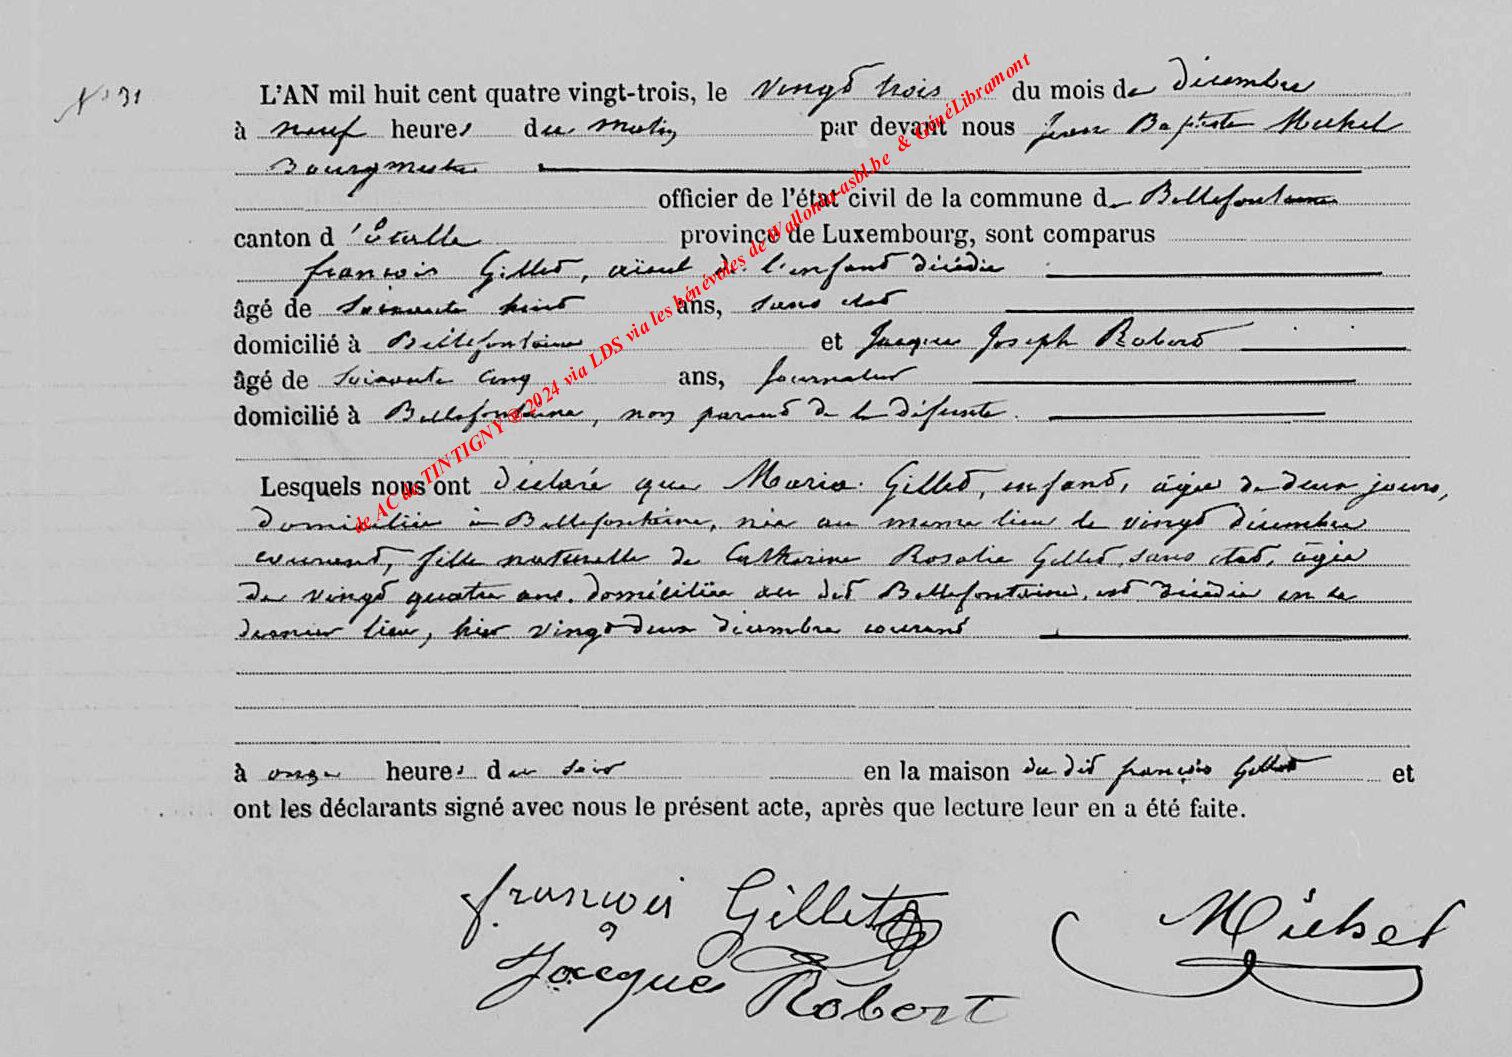 N° 31
L'AN mil huit cent quatre vingt-trois, le vingt trois du mois de Décembre
à neuf heures du matin par devant nous Jean Baptiste Michel
Bourgmestre
officier de l'état civil de la commune de Bellefontaine
canton d'Étalle province de Luxembourg, sont comparus
françois Gillet, aïeul de l'enfant décédée
âgé de soixante huit ans, sans état
domicilié à Bellefontaine et Jacques Joseph Robert
âgé de soixante cinq ans, Journalier
domicilié à Bellefontaine, non parent de la défunte.
Lesquels nous ont déclaré que Maria Gillet, enfant, âgée de deux jours,
domiciliée à Bellefontaine, née au même lieu le vingt décembre
courant, fille naturelle de Catherine Rosalie Gillet, sans état, âgée
de vingt quatre ans, domiciliée au dit Bellefontaine, est décédée en ce
dernier lieu, hier vingt deux décembre courant
à onze heures du soir en la maison du dit françois Gillet et
ont les déclarants signé avec nous le présent acte, après que lecture leur en a été faite.
françois Gillet
Michel
Jacques Robert
de AC de TINTIGNY @2024 via LDS via les bénévoles de Wallonia-asbl.be & GénéLibramont